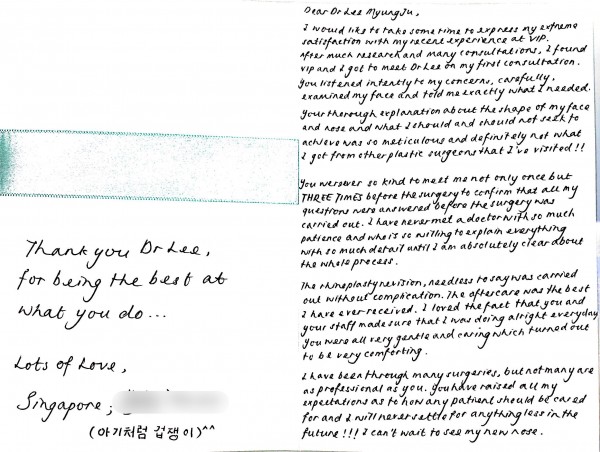 Dear Dr Lee Myung Ju,
I would like to take some time to express my extreme
satisfaction with my recent experience at VIP.
After much research and many consultations, I found
VIP and I got to meet Dr Lee on my first consultation.
You listened intently to my concerns, carefully,
examined my face and told me exactly what I needed.
Your thorough explanation about the shape of my face
and nose and what I should and should not seek to
achieve was so meticulous and definitely not what
I got from other plastic surgeons that I've visited!!
You were so kind to meet me not only once but
THREE TIMES before the surgery to confirm that all my
questions were answered before the surgery was
carried out. I have never met a doctor with so much
patience and who's so willing to explain everything
with so much detail until I am absolutely clear about
the whole process.
The rhinoplasty revision, needless to say was carried
out without complication. The aftercare was the best
I have ever received. I loved the fact that you and
your staff made sure that I was doing alright everyday
You were all very gentle and caring which turned out
to be very comforting.
I have been through many surgeries, but not many are
as professional as you. You have raised all my
expectations as to how any patient should be cared
for and I will never settle for anything less in the
future!!! I can't wait to see my new nose.
Thank you Dr Lee,
for being the best at
what you do...
Lots of Love,
Singapore,
(아기처럼 겁쟁이)^^